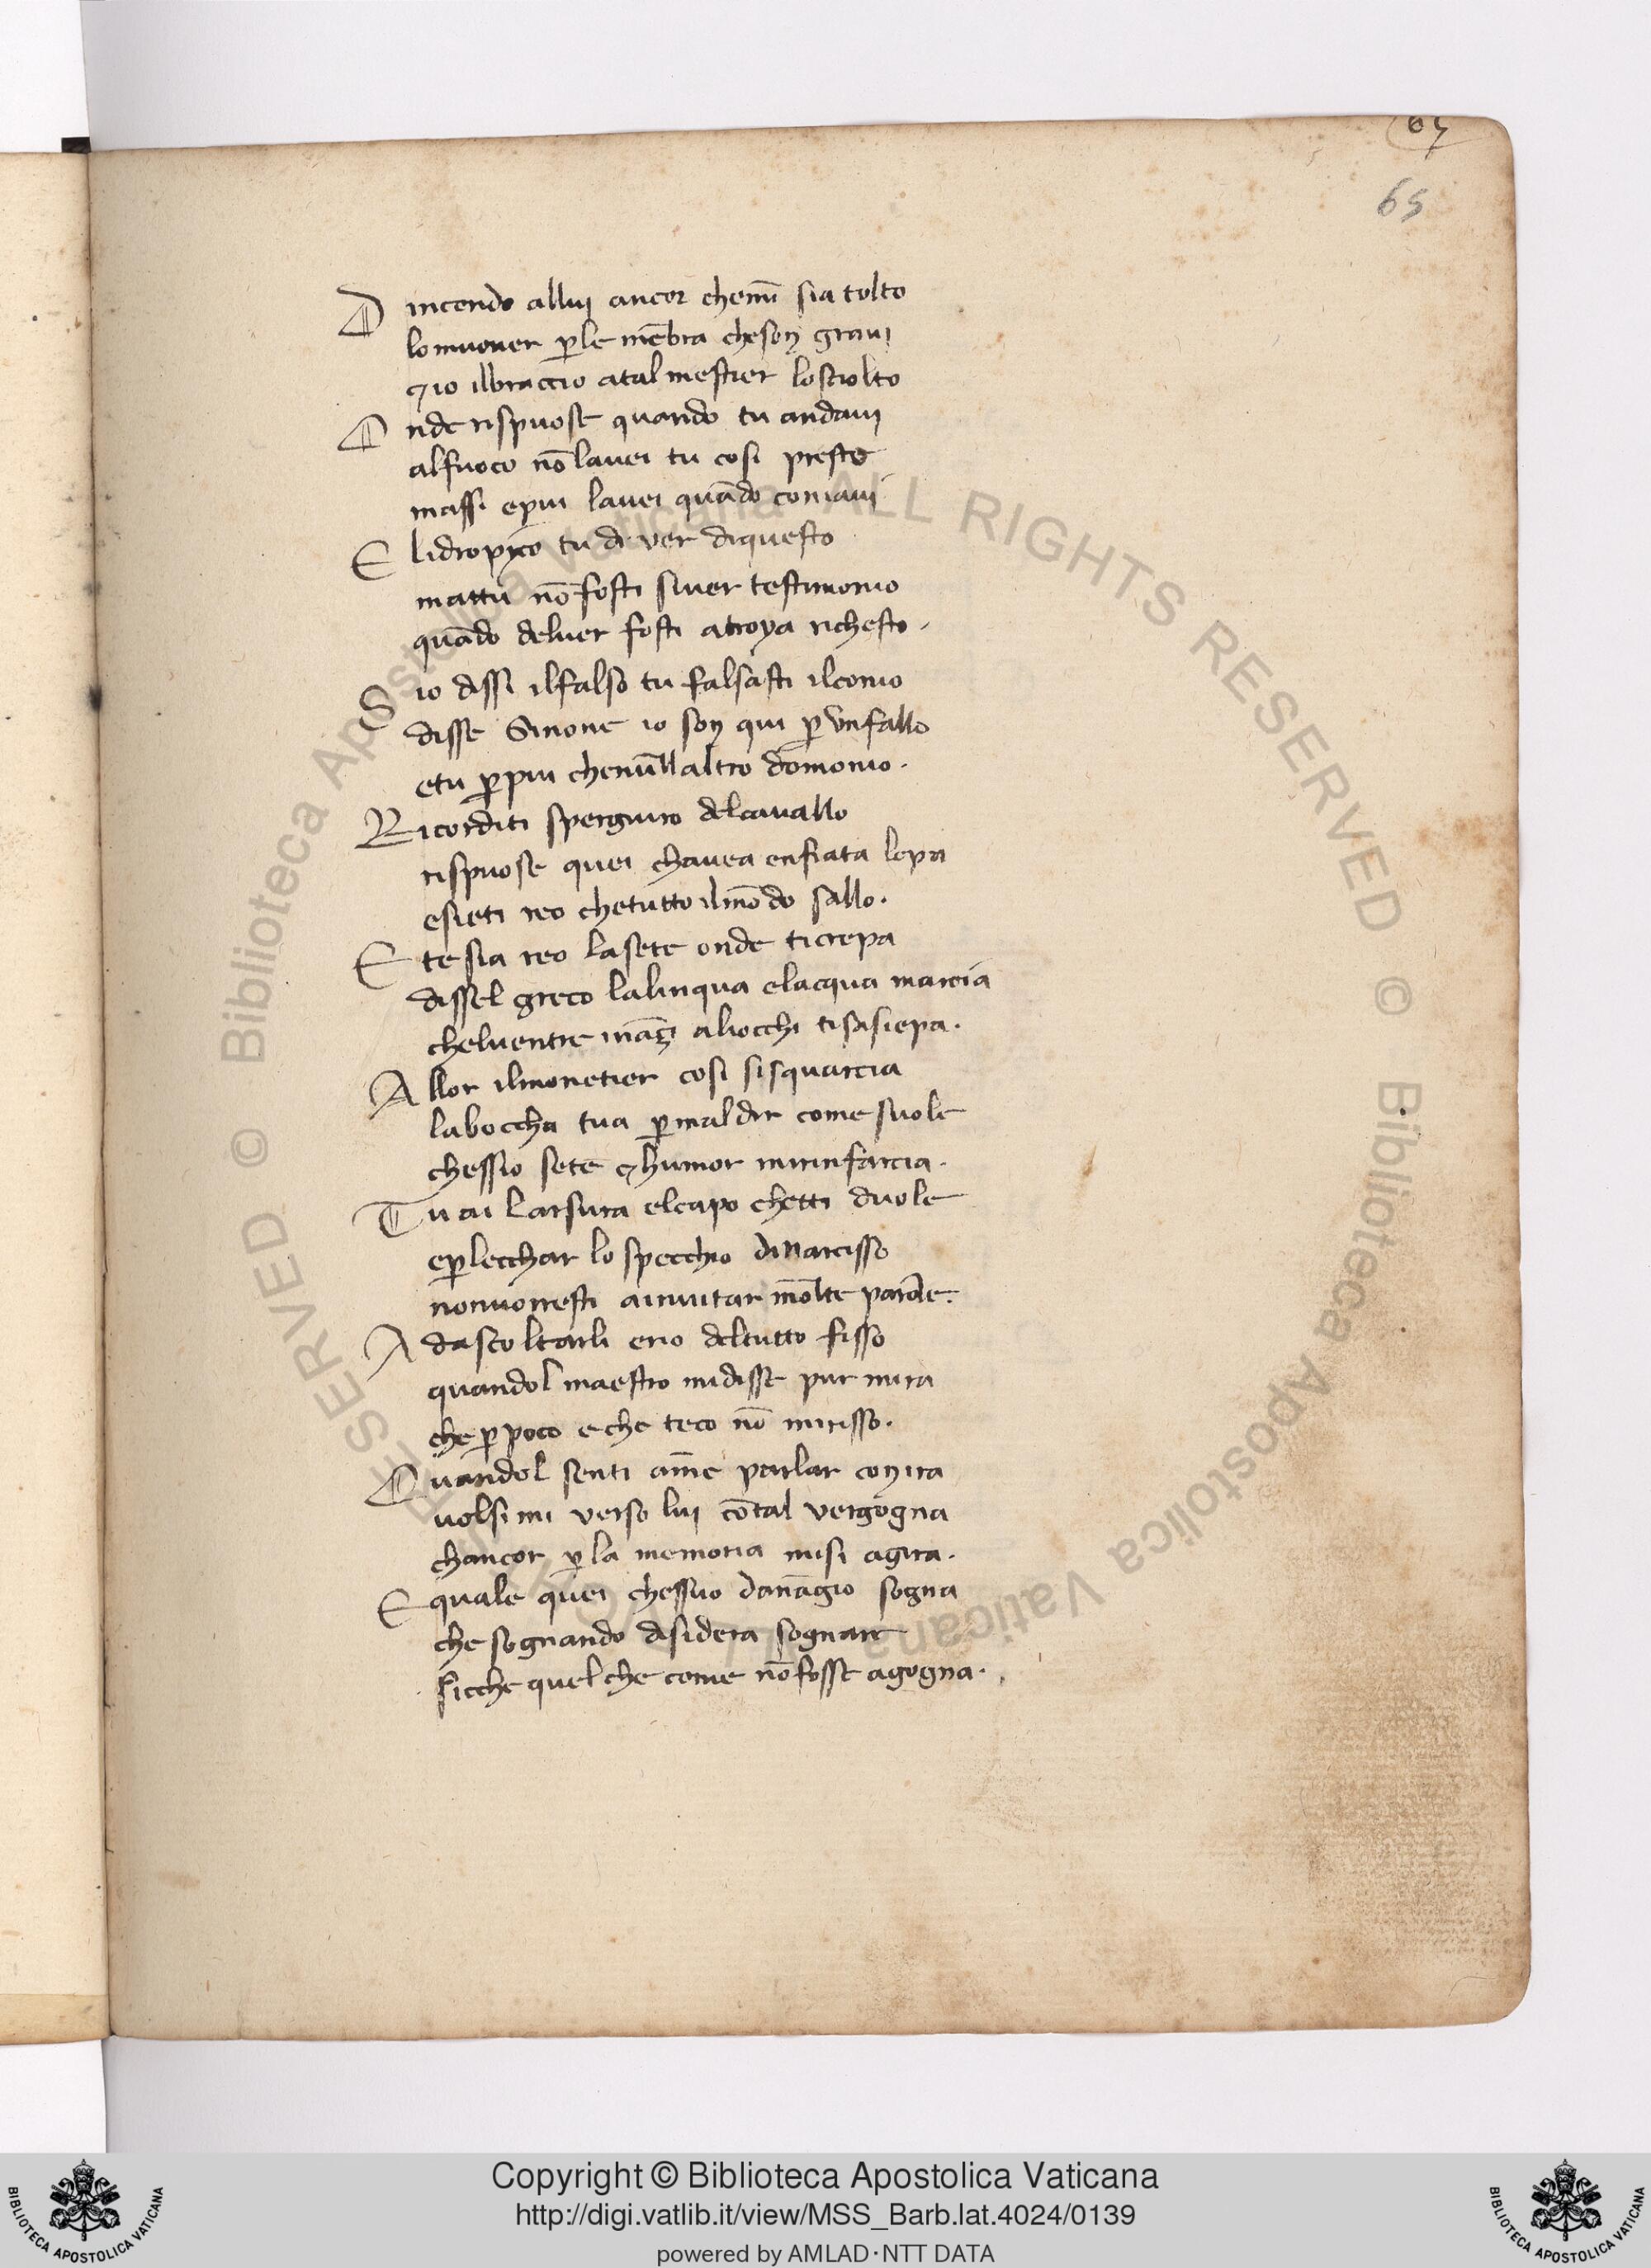 67
65
D incendo alluj ancor chemi͂ sia tolto
lomuouer ꝑle me͂bra cheson grauj
⁊ io ilbraccio atal mestier losciolto
O nde rispuose quando tu andauj
alfuoco no͂ lauei tu cosi presto
massi epiu lauei qua͂do coniaui
E lidropico tu di ver diquesto
mattu no͂ fosti siuer testimonio
qua͂do deluer fosti atroya richesto.
S io dissi ilfalso tu falsasti ilconio
disse Sinone io son qui ꝑ vnfallo
etu ꝑpiu chenu͂ll altro domonio.
R icorditi sperguiro delcauallo
rispuose quei chauea enfiata lepa
esieti reo chetutto ilmo͂do sallo.
E te sia reo lasete onde ticrepa
dissel greco lalinqua elacqua marcia
cheluentre ina͂zi aliocchi tisasiepa.
A llor ilmonetier cosi sisquarcia
laboccha tua ꝑmaldir comesuole
chessio sete ⁊ humor mirinfarcia.
T u ai larsura elcapo chetti duole
eꝑlecchar lo specchio dinarcisso
nonuorresti ainuitar molte parole.
A dascoltarli ero deltutto fisso
quandol maestro midisse pur mira
che ꝑ poco e che teco no͂ mirisso.
Q uandol senti ame͂ parlar conira
uolsi mi verso luj co͂tal vergogna
chancor ꝑ la memoria misi agira.
E quale quei chessuo dana͂gio sogna
che sognando disidera sognare
sicche quel che come no͂ fosse agogna.
© Biblioteca Apostolica Vaticana ALL RIGHTS RESERVED © Biblioteca Apostolica Vaticana ALL RIGHTS RESERVED
Copyright © Biblioteca Apostolica Vaticana
http://digi.vatlib.it/view/MSS_Barb.lat.4024/0139
powered by AMLAD·NTT DATA
BIBLIOTECA APOSTOLICA VATICANA
BIBLIOTECA APOSTOLICA VATICANA